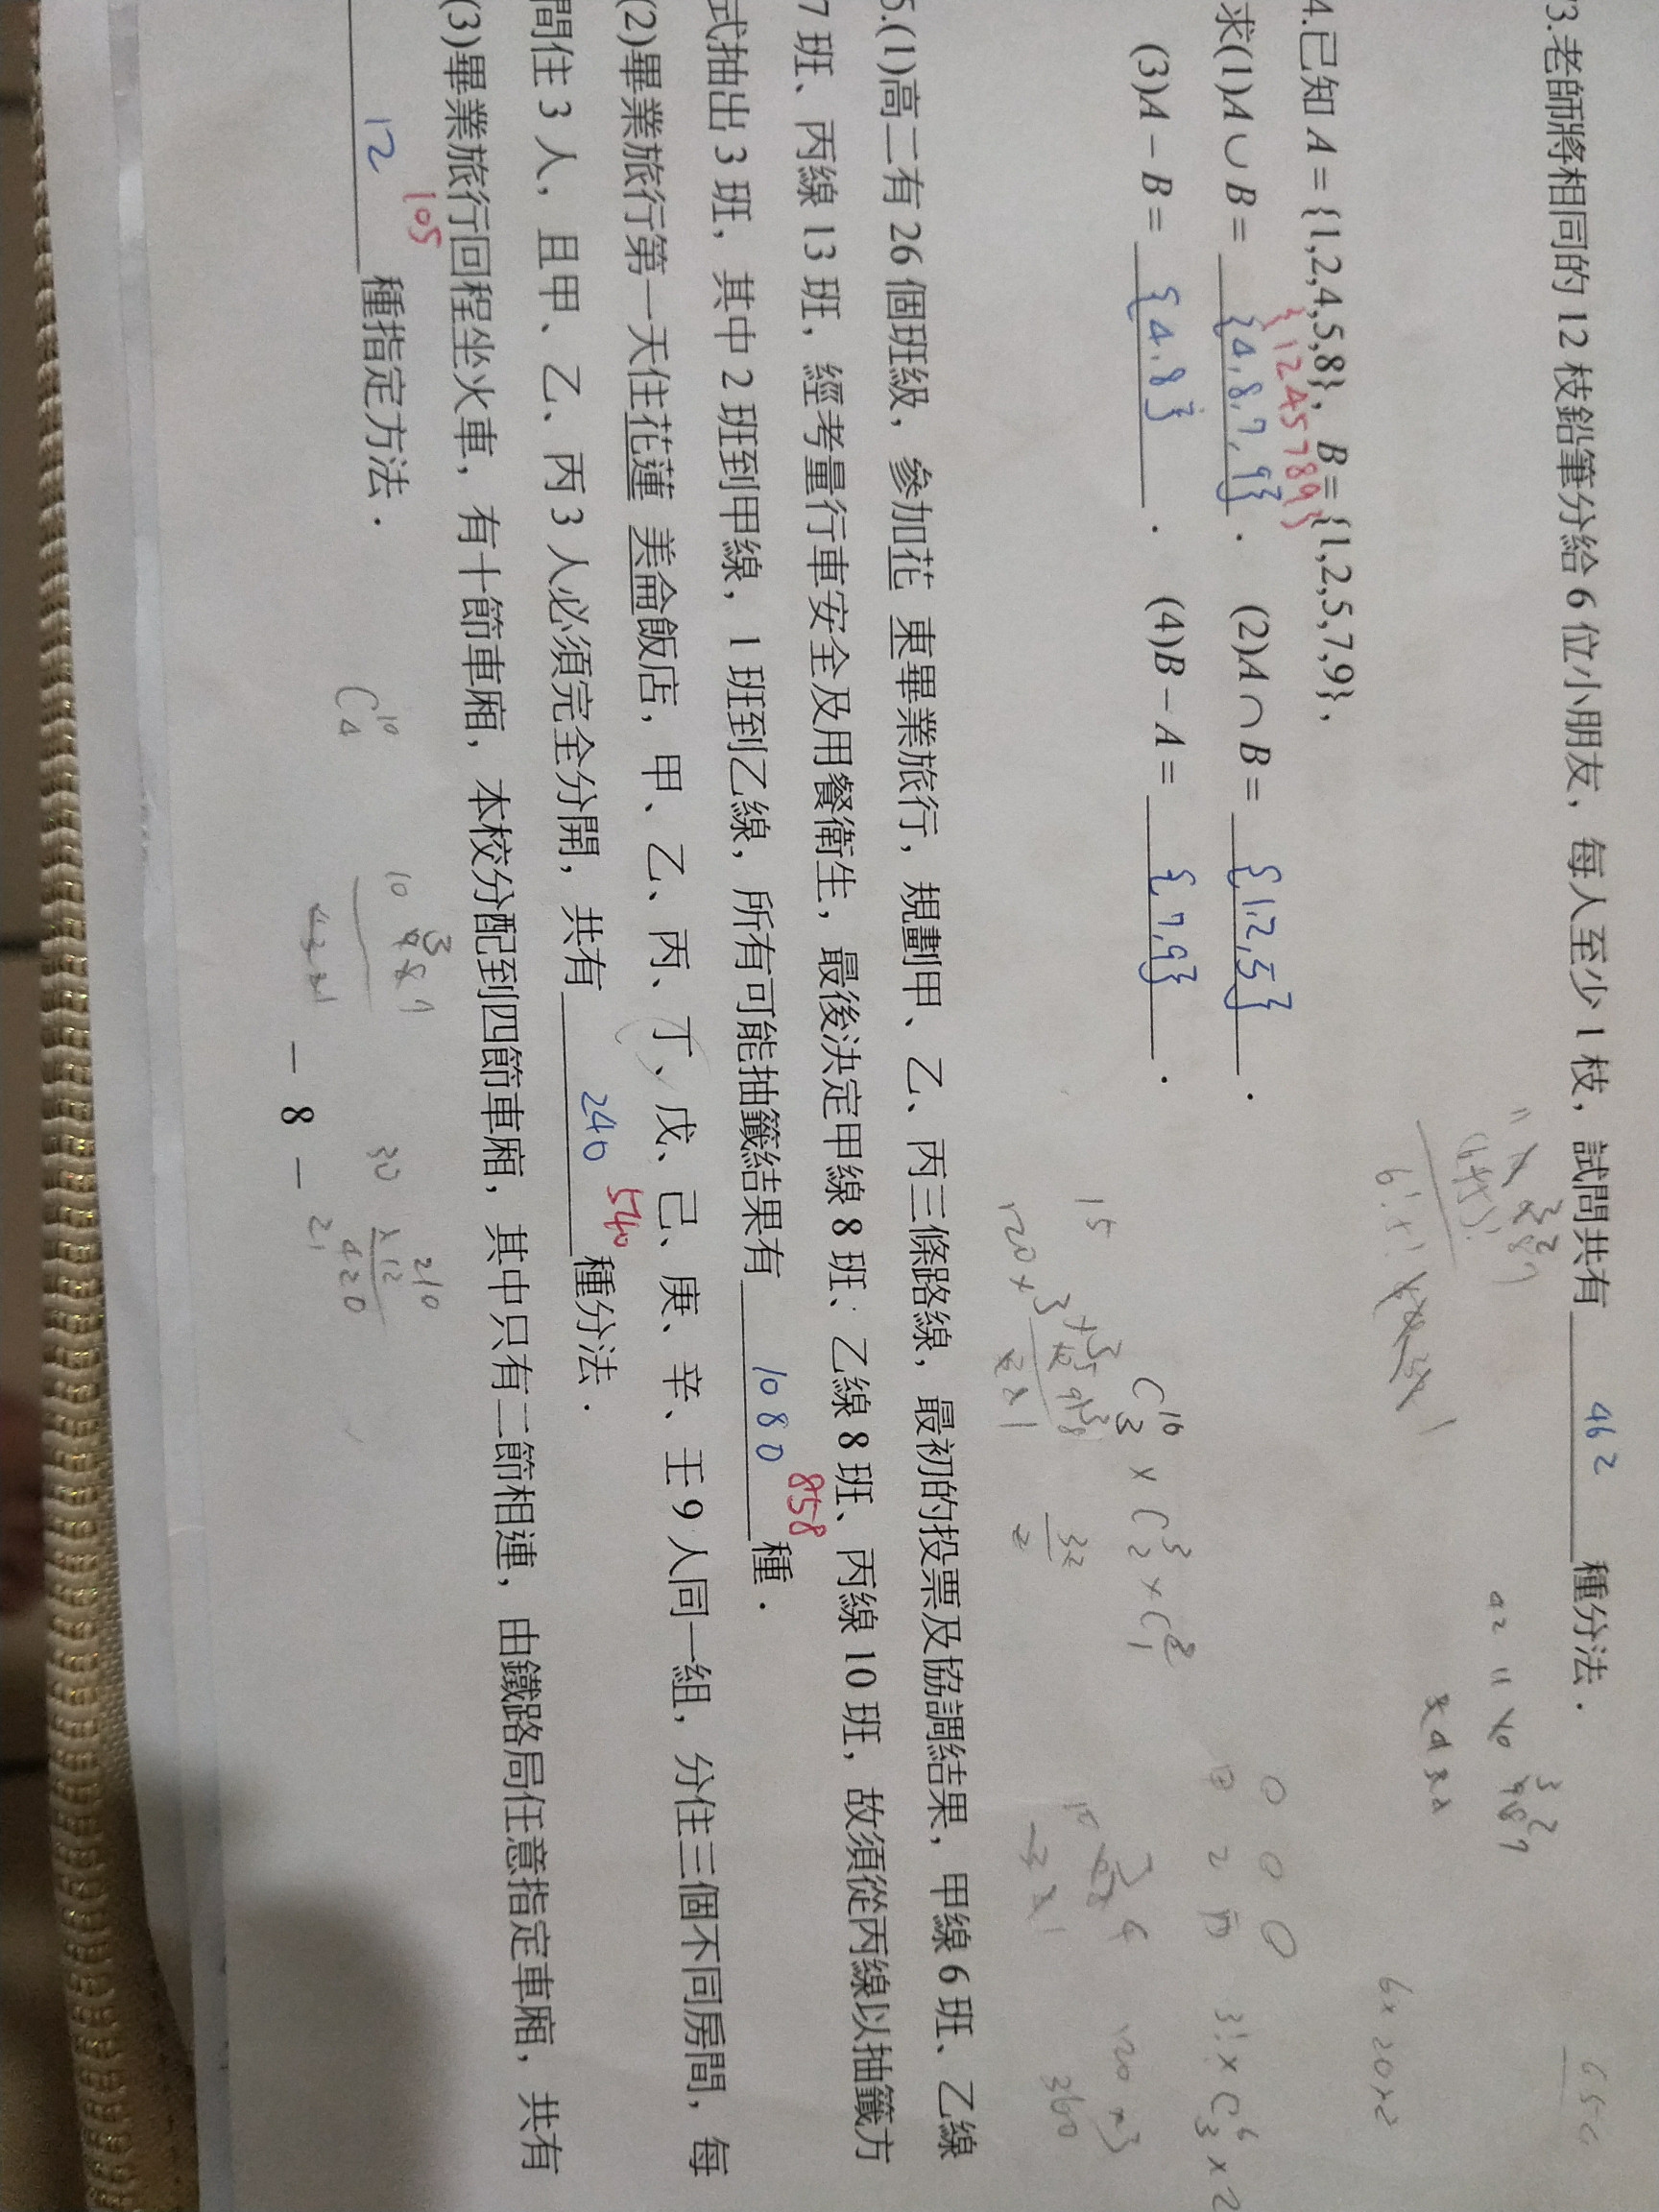 3.老師將相同的 12 枝鉛筆分給 6 位小朋友，每人至少 1 枝，試問共有 462 種分法．
4.已知 A = {1,2,4,5,8}，B = {1,2,5,7,9}，
{1245789}
求(1)A∪B = {4,8,7,9}．  (2)A∩B = {1,2,5}．
(3)A − B = {4,8}．  (4)B − A = {7,9}．
C^16_3 × C^3_2 ×
3! × C^6_3 × 2
6×20×2
120×3
360
5.(1)高二有 26 個班級，參加花東畢業旅行，規劃甲、乙、丙三條路線，最初的投票及協調結果，甲線 6 班、乙線
7 班、丙線 13 班，經考量行車安全及用餐衛生，最後決定甲線 8 班、乙線 8 班、丙線 10 班，故須從丙線以抽籤方
式抽出 3 班，其中 2 班到甲線，1 班到乙線，所有可能抽籤結果有 1080 858 種．
(2)畢業旅行第一天住花蓮美侖飯店，甲、乙、丙、丁、戊、己、庚、辛、壬 9 人同一組，分住三個不同房間，每
間住 3 人，且甲、乙、丙 3 人必須完全分開，共有 240 540 種分法．
(3)畢業旅行回程坐火車，有十節車廂，本校分配到四節車廂，其中只有二節相連，由鐵路局任意指定車廂，共有
12 105 種指定方法．
C^10_4
210
420
− 8 −